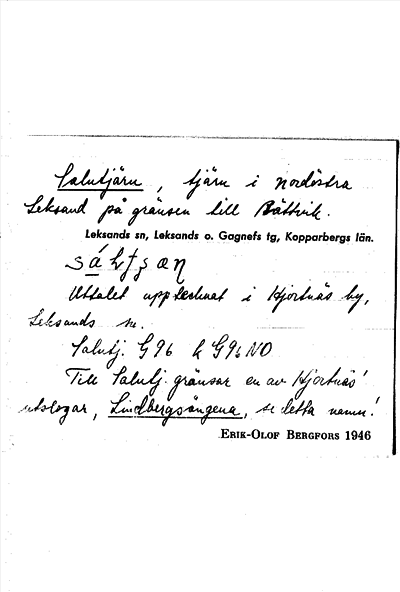 Salutjärn, tjärn i nordöstra
Leksand på gränsen till Rättvik.
Leksands sn, Leksands o. Gagnefs tg, Kopparbergs län.
Uttalet upptecknat i Hjortnäs by,
Leksands sn.
Salutj. G96 k G96 NO
Till Salutj. gränsar en av Hjortnäs'
utslogar, Lindbergsängena, se detta namn!
ERIK-OLOF BERGFORS 1946